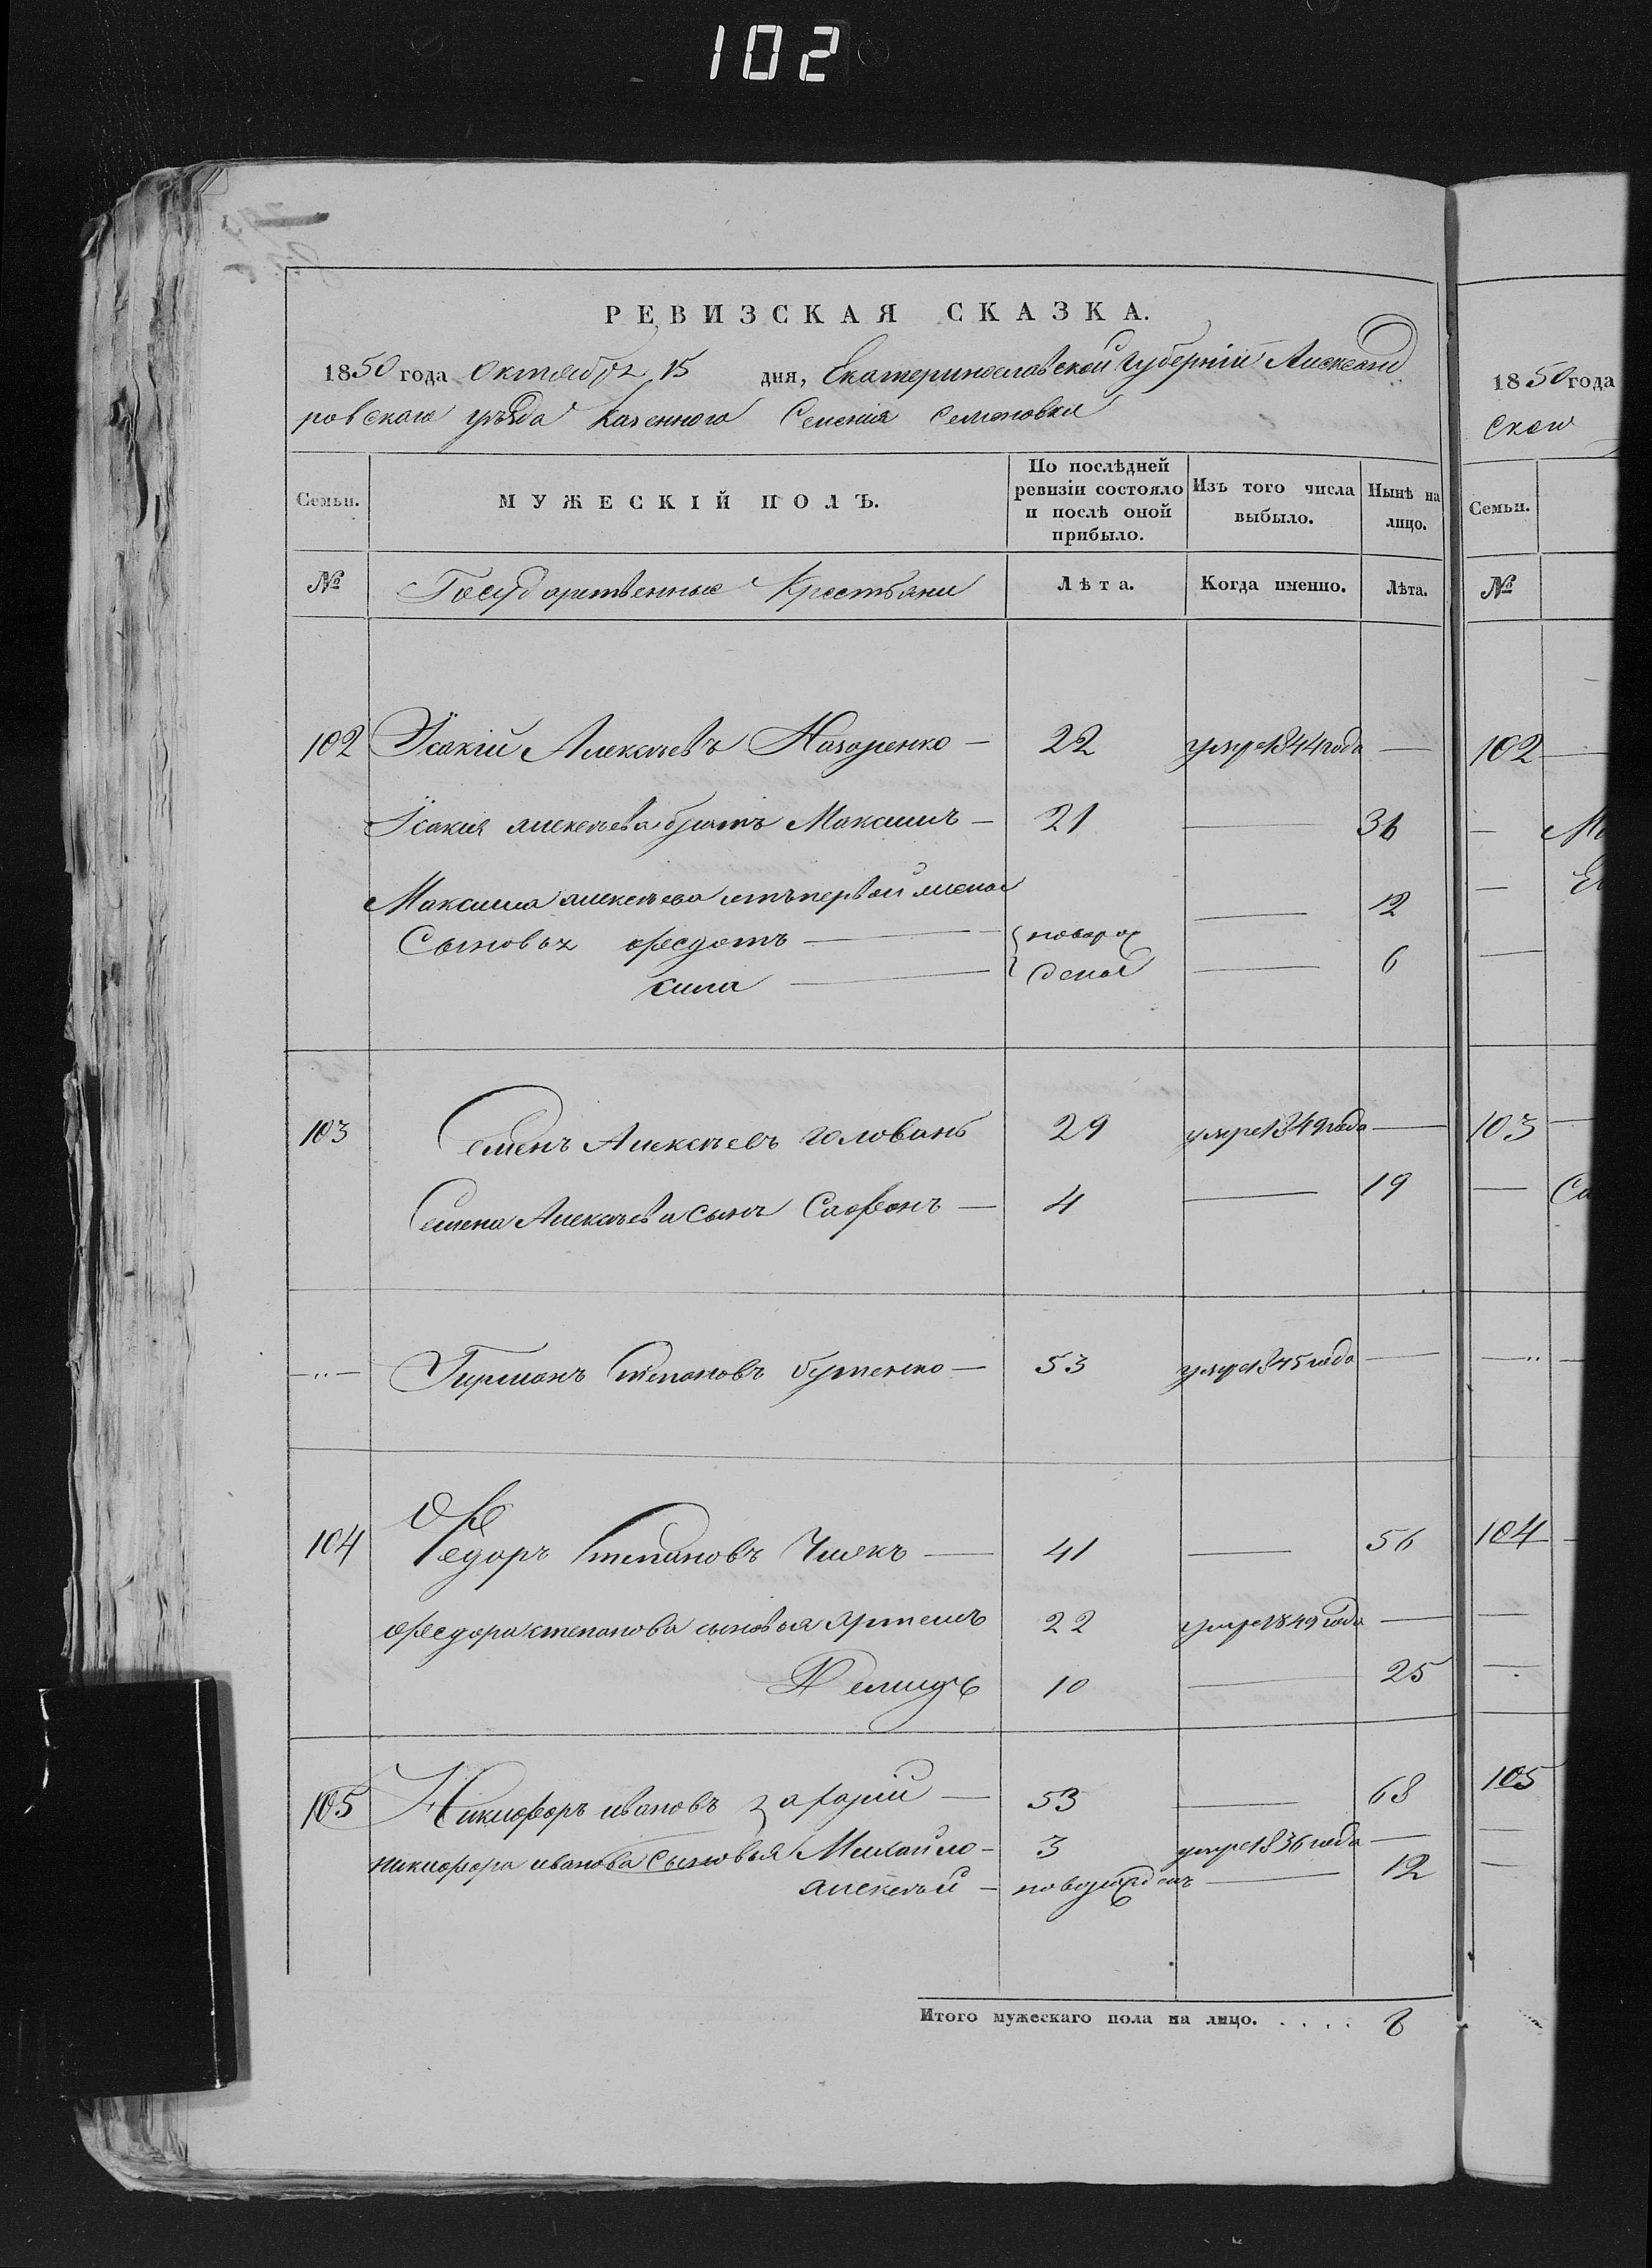 102
РЕВИЗСКАЯ СКАЗКА.
1850 года Октября 15 дня, Екатеринославской Губерніи Александ
ровскаго уѣзда Казенного Селенія Семеновки
Семьи. МУЖЕСКІЙ ПОЛЪ. По послѣдней ревизіи состояло и послѣ оной прибыло. Изъ того числа выбыло. Нынѣ на лицо.
№ Государственные Крестьяне Лѣта. Когда именно. Лѣта.
102 Ісакій Алексѣевъ Назаренко — 22 умре 1844 года —
Ісакія алексѣева братъ Максимъ — 21 — 36
Максима алексѣева отъ первой жены
Сыновья Федотъ — новорож — 12
сила — дены — 6
103 Семенъ Алексѣевъ головань 29 умре 1849 года —
Семена Алексѣева сынъ Сафонъ — 4 — 19
—"— Гирманъ Степановъ бутенко — 53 умре 1845 года —
104 Федоръ Степановъ Чижъ — 41 — 56
Федора степанова сыновья Артемъ 22 умре 1849 года —
Демидъ 10 — 25
105 Никифоръ ивановъ захарій — 53 — 68
никифора иванова Сыновья Михайло — 3 умре 1836 года —
алексѣй — новорожденъ — 12
Итого мужескаго пола на лицо. . . . . 8
1850 года
Скои
Семьи.
№
102 —
—
—
—
103 —
— Са
—"— —
104 —
—
—
105
—
—